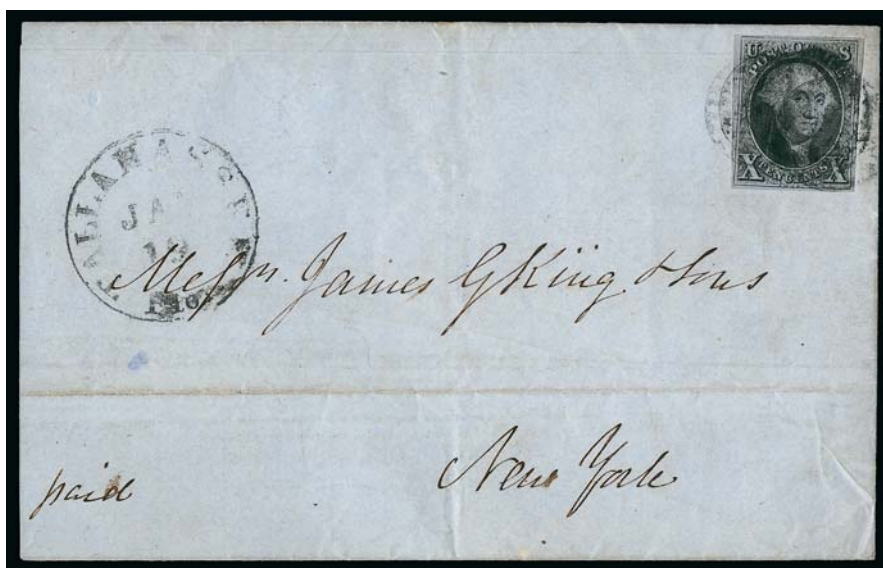 U S
POST OFFICE
X TEN CENTS X
TALLAHASSEE
JAN
19
Flo.
Messrs. James G King & Sons
New York
paid